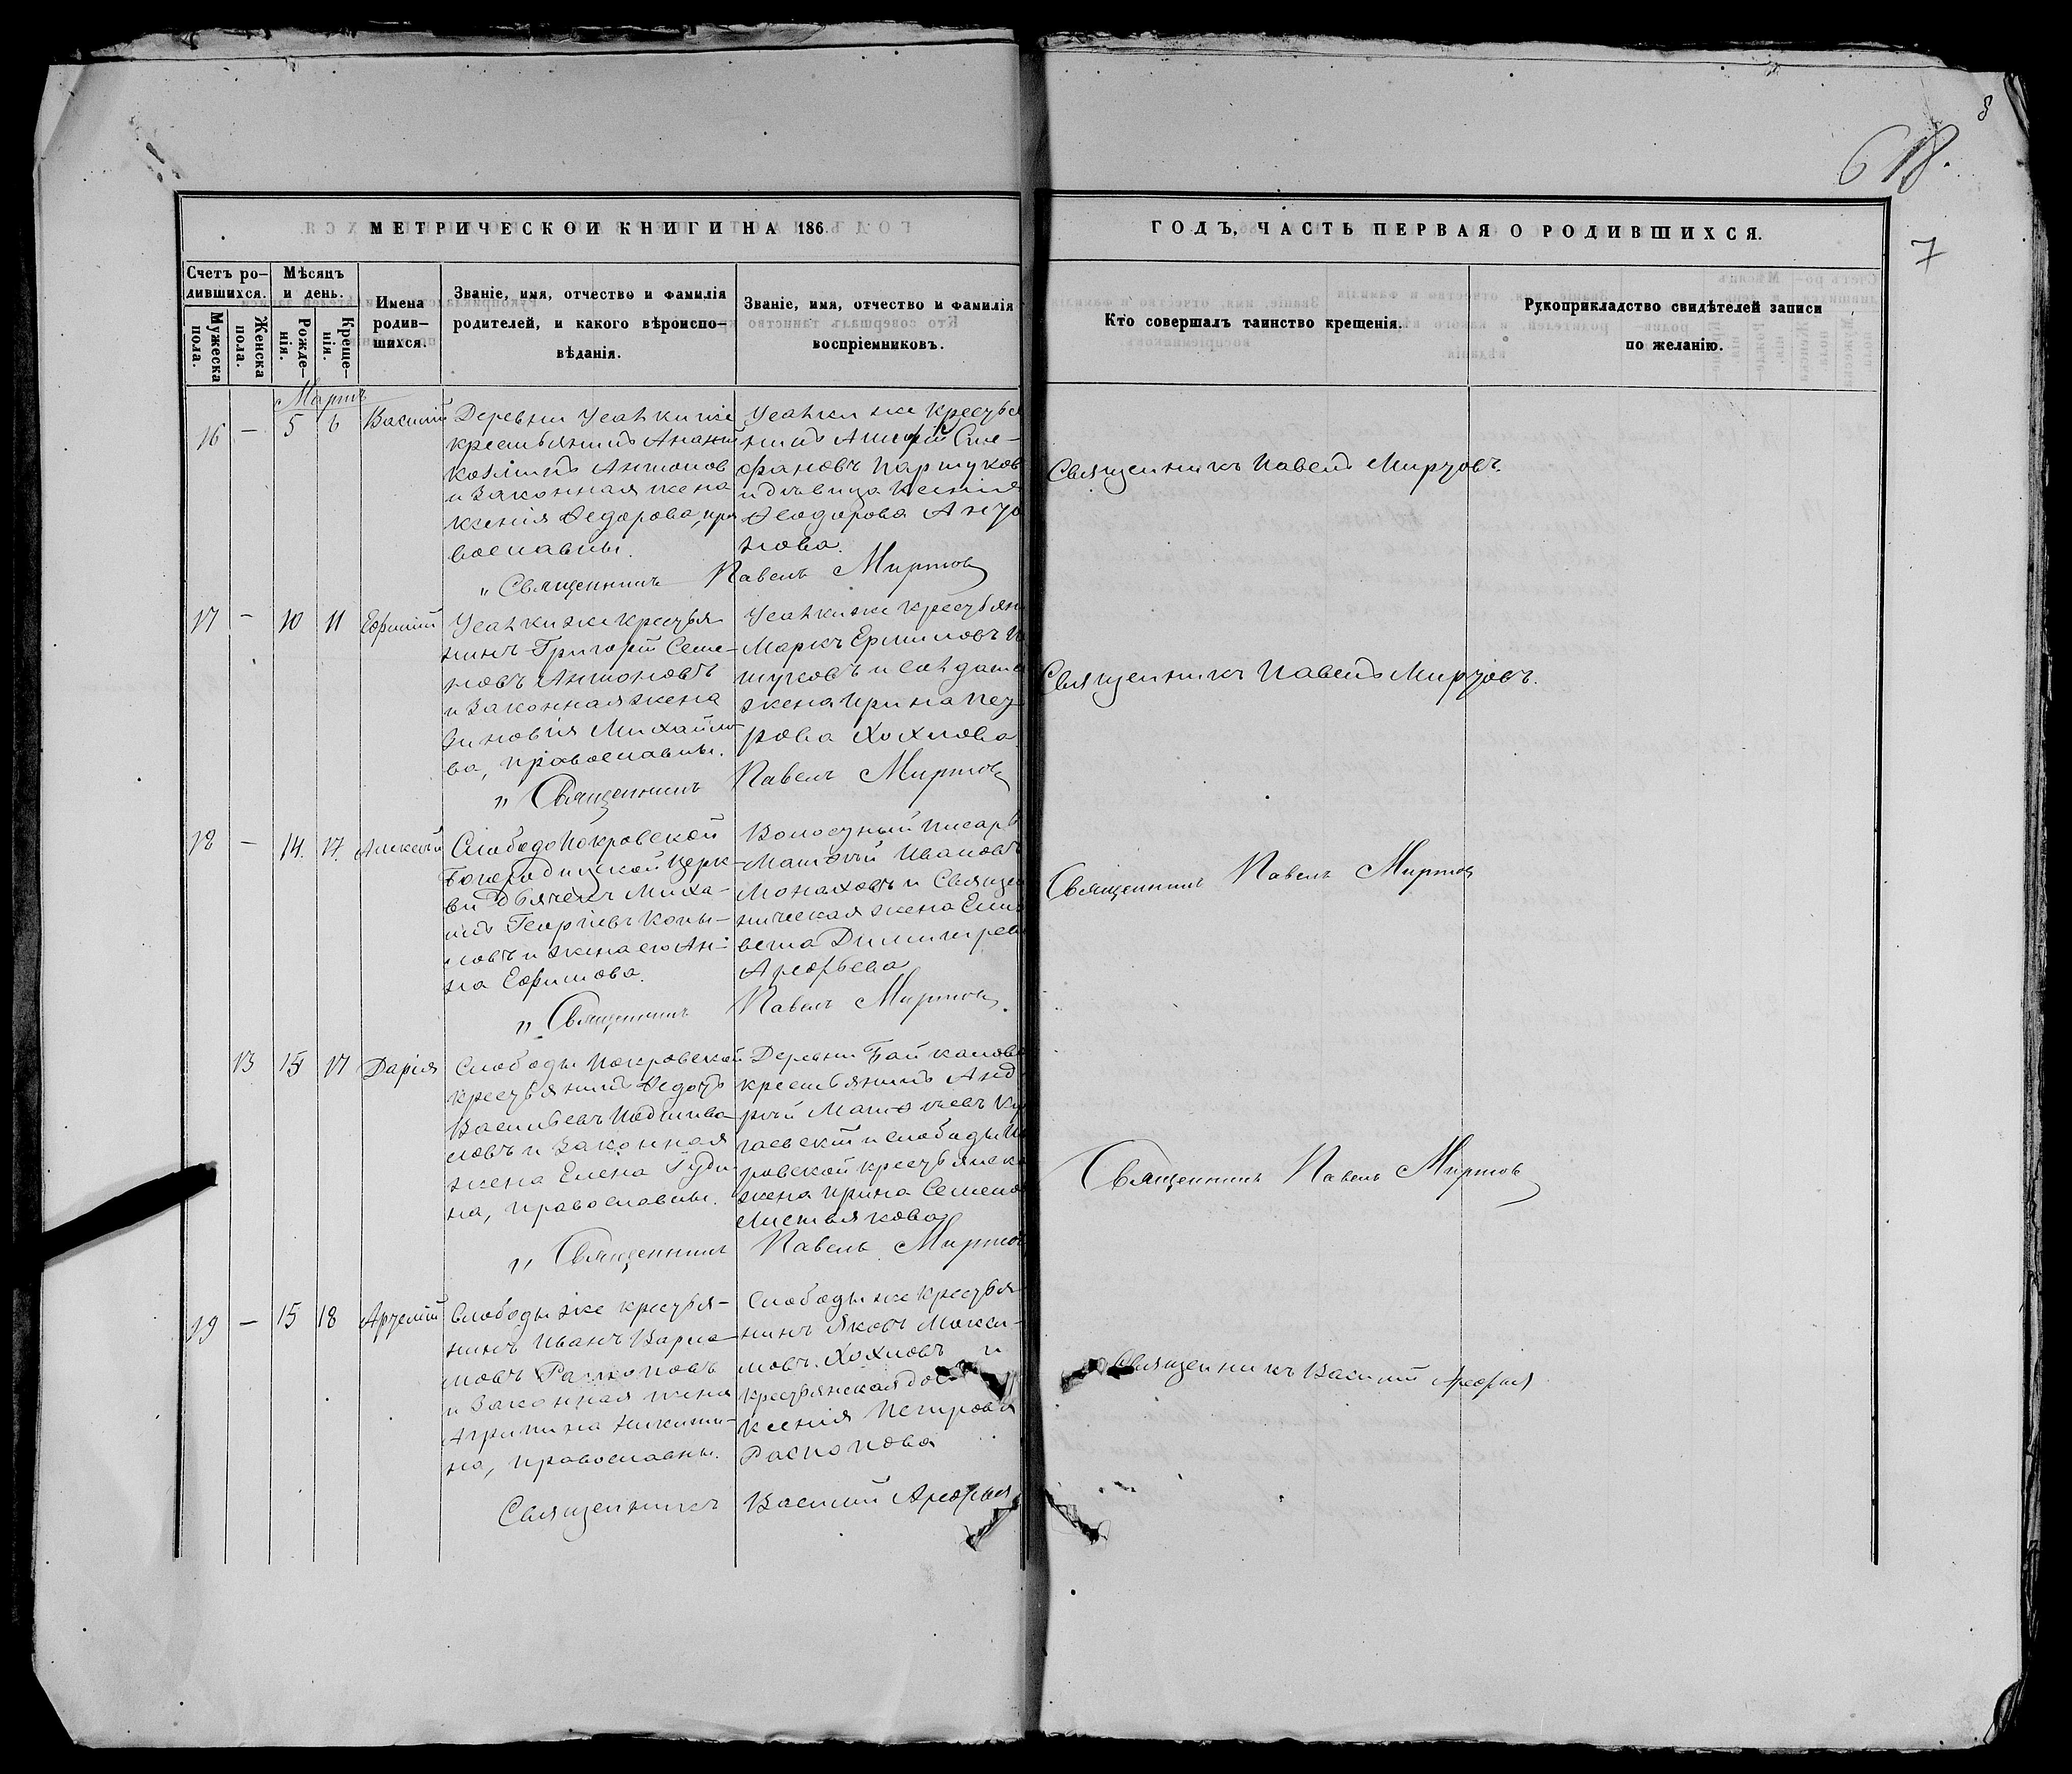 8
6
7
МЕТРИЧЕСКОЙ КНИГИ НА 186
ГОДЪ, ЧАСТЬ ПЕРВАЯ О РОДИВШИХСЯ.
Счетъ ро-
дившихся.
Мужеска
пола.
Женска
пола.
Мѣсяцъ
и день.
Рожде-
нія.
Креще-
нія.
Имена
родив-
шихся.
Званіе, имя, отчество и фамилія
родителей, и какого вѣроиспо-
вѣданія.
Званіе, имя, отчество и фамилія
воспріемниковъ.
Кто совершалъ таинство крещенія.
Рукоприкладство свидѣтелей записи
по желанію.
Мартъ
16 — 5 6 Василій
крестьянинъ
Антоновъ
и законная жена
Ксенія Ѳедорова, пра
вославны.
же крестья
нинъ Сте-
фановъ Паршуков
и дѣвица Ксенія
Ѳеодорова Анто
нова.
Священникъ Павелъ Миртовъ.
„ Священникъ Павелъ Миртовъ
17 — 10 11 Ефимій
же крестья
нинъ Григорій Семе-
новъ Антоновъ
и законная жена
Зиновія Михайло
ва, православны.
же крестьян
Маркъ Ермиловъ
жена Ирина Пет
рова Хохлова
Священникъ Павелъ Миртовъ.
„ Священникъ Павелъ Миртовъ
18 — 14. 17. Алексѣй
Слободо Покровской
Богородицкой Церк-
ви Дьячекъ Миха-
илъ Георгіевъ Копы-
ловъ и жена его Ан-
на Ефимова.
Волостный писарь
Матѳей Ивановъ
Монаховъ и Священ
ническая жена Елиза
вета Димитрев
Арефьева
Священникъ Павелъ Миртовъ
„ Священникъ Павелъ Миртовъ.
13 15 17 Дарія
Слободы Покровской
крестьянинъ Ѳедотъ
Васильевъ Подшива
ловъ и законная
жена Елена
на, православны.
Деревни Байкалова
крестьянинъ Анд
рей Матѳеевъ
и слободы По
ровской крестьянска
жена Ирина Семено
Мистьякова
Священникъ Павелъ Миртовъ
„ Священникъ Павелъ Миртовъ
19 — 15 18 Артемій
Слободы же крестья-
нинъ Иванъ Варла-
мовъ
и законная жена
Агрипина Никити-
на, православны.
Слободы же крестья
нинъ Яковъ Макси-
мовъ Хохловъ и
крестьянская
Ксенія Петрова
Распопова
Священникъ Василій Арефьев
Священникъ Василій Арефьев